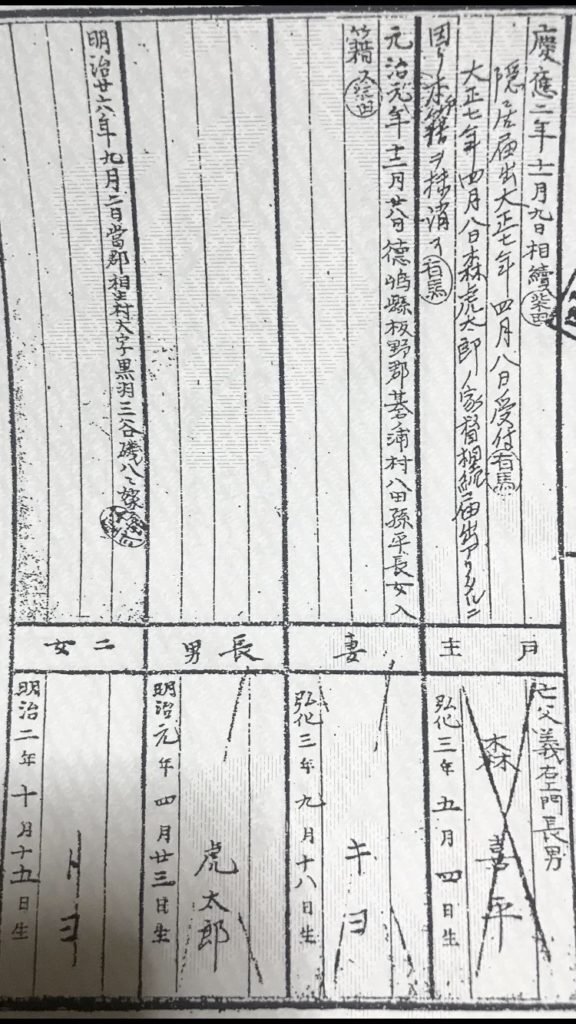 慶應二年十一月九日相續柴田
隠居届出大正七年四月八日受付有馬
大正七年四月八日森虎太郎ノ家督相続届出アリタルニ
因リ本籍ヲ抹消ス有馬
戸主
亡父義右エ門長男
森喜平
弘化三年五月四日生
元治元年十二月廿八日徳嶋縣板野郡碁浦村八田孫平長女入
籍柴田
妻
キヨ
弘化三年九月十八日生
長男
虎太郎
明治元年四月廿三日生
明治廿六年九月二日當郡相生村大字黒羽三谷磯八ヘ嫁ス
二女
トヨ
明治二年十月十五日生